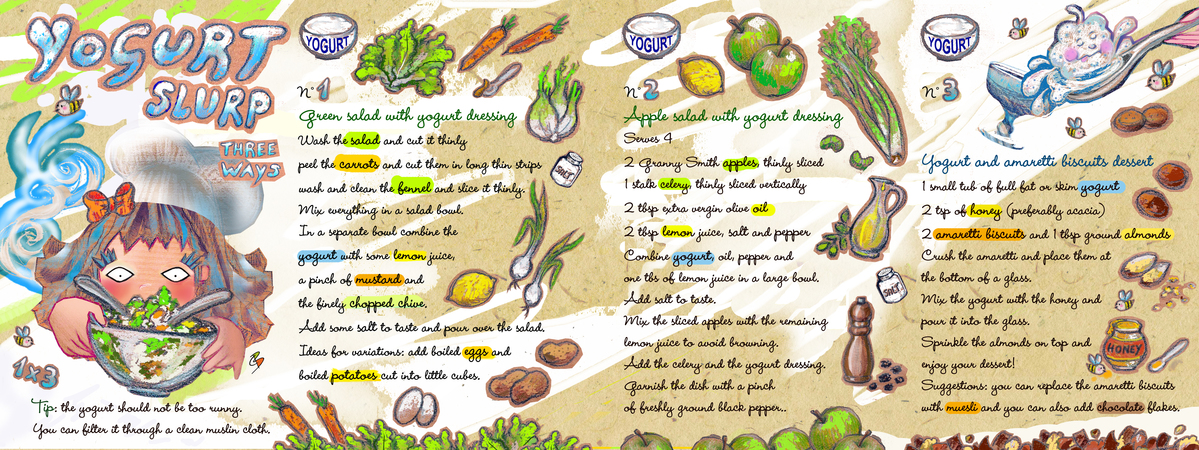 YOGURT
SLURP
THREE
WAYS
1x3
Tip: the yogurt should not be too runny.
You can filter it through a clean muslin cloth.
YOGURT
N° 1
Green salad with yogurt dressing
Wash the salad and cut it thinly
peel the carrots and cut them in long thin strips
wash and clean the fennel and slice it thinly.
Mix everything in a salad bowl.
In a separate bowl combine the
yogurt with some lemon juice,
a pinch of mustard and
the finely chopped chive.
Add some salt to taste and pour over the salad.
Ideas for variations: add boiled eggs and
boiled potatoes cut into little cubes.
SALT
YOGURT
N° 2
Apple salad with yogurt dressing
Serves 4
2 Granny Smith apples, thinly sliced
1 stalk celery, thinly sliced vertically
2 tbsp extra vergin olive oil
2 tbsp lemon juice, salt and pepper
Combine yogurt, oil, pepper and
one tbs of lemon juice in a large bowl.
Add salt to taste.
Mix the sliced apples with the remaining
lemon juice to avoid browning.
Add the celery and the yogurt dressing.
Garnish the dish with a pinch
of freshly ground black pepper..
SALT
YOGURT
N° 3
Yogurt and amaretti biscuits dessert
1 small tub of full fat or skim yogurt
2 tsp of honey (preferably acacia)
2 amaretti biscuits and 1 tbsp ground almonds
Crush the amaretti and place them at
the bottom of a glass.
Mix the yogurt with the honey and
pour it into the glass.
Sprinkle the almonds on top and
enjoy your dessert!
Suggestions: you can replace the amaretti biscuits
with muesli and you can also add chocolate flakes.
HONEY